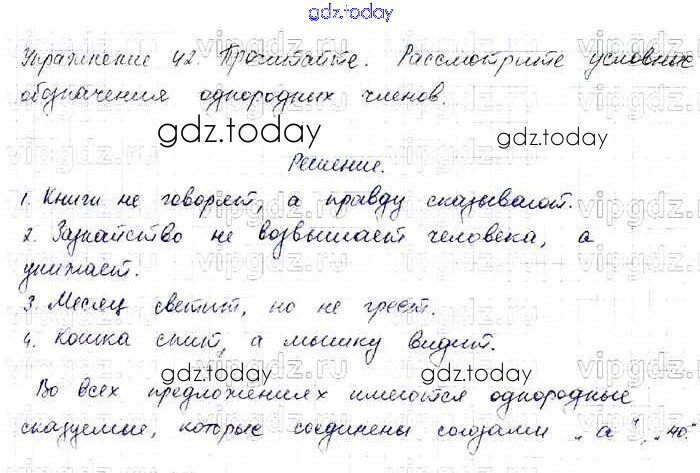 gdz.today
Упражнение 42. Прочитайте. Рассмотрите условные
обозначения однородных членов.
gdz.today
gdz.today
Решение.
1. Книги не говорят, а правду сказывают.
2. Зазнайство не возвышает человека, а
унижает.
3. Месяц светит, но не греет.
gdz.today
4. Кошка спит, а мышку видит.
gdz.today
Во всех предложениях имеются однородные
сказуемые, которые соединены союзами „а", „но"
gdz.today